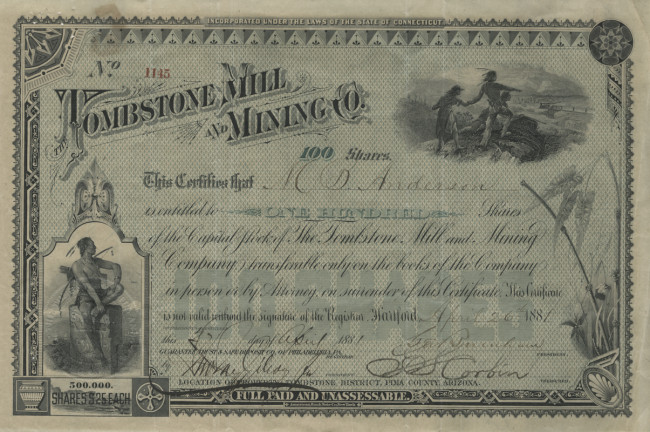 INCORPORATED UNDER THE LAWS OF THE STATE OF CONNECTICUT
No 1145
THE TOMBSTONE MILL
AND MINING CO.
100 Shares.
This Certifies that M D Anderson
is entitled to ONE HUNDRED Shares
of the Capital stock of The Tombstone Mill and Mining
Company, transferable only on the books of the Company
in person or by Attorney, on surrender of this Certificate. This Certificate
is not valid without the signature of the Registrar. Hartford, April 26 1881
this day of April 1881
GUARANTEE TRUST & SAFE DEPOSIT CO. OF PHILADELPHIA, PA.
PRESIDENT
S Corbin
LOCATION OF PROPERTY TOMBSTONE DISTRICT, PIMA COUNTY, ARIZONA.
500.000.
SHARES $25 EACH
FULL PAID AND UNASSESSABLE.